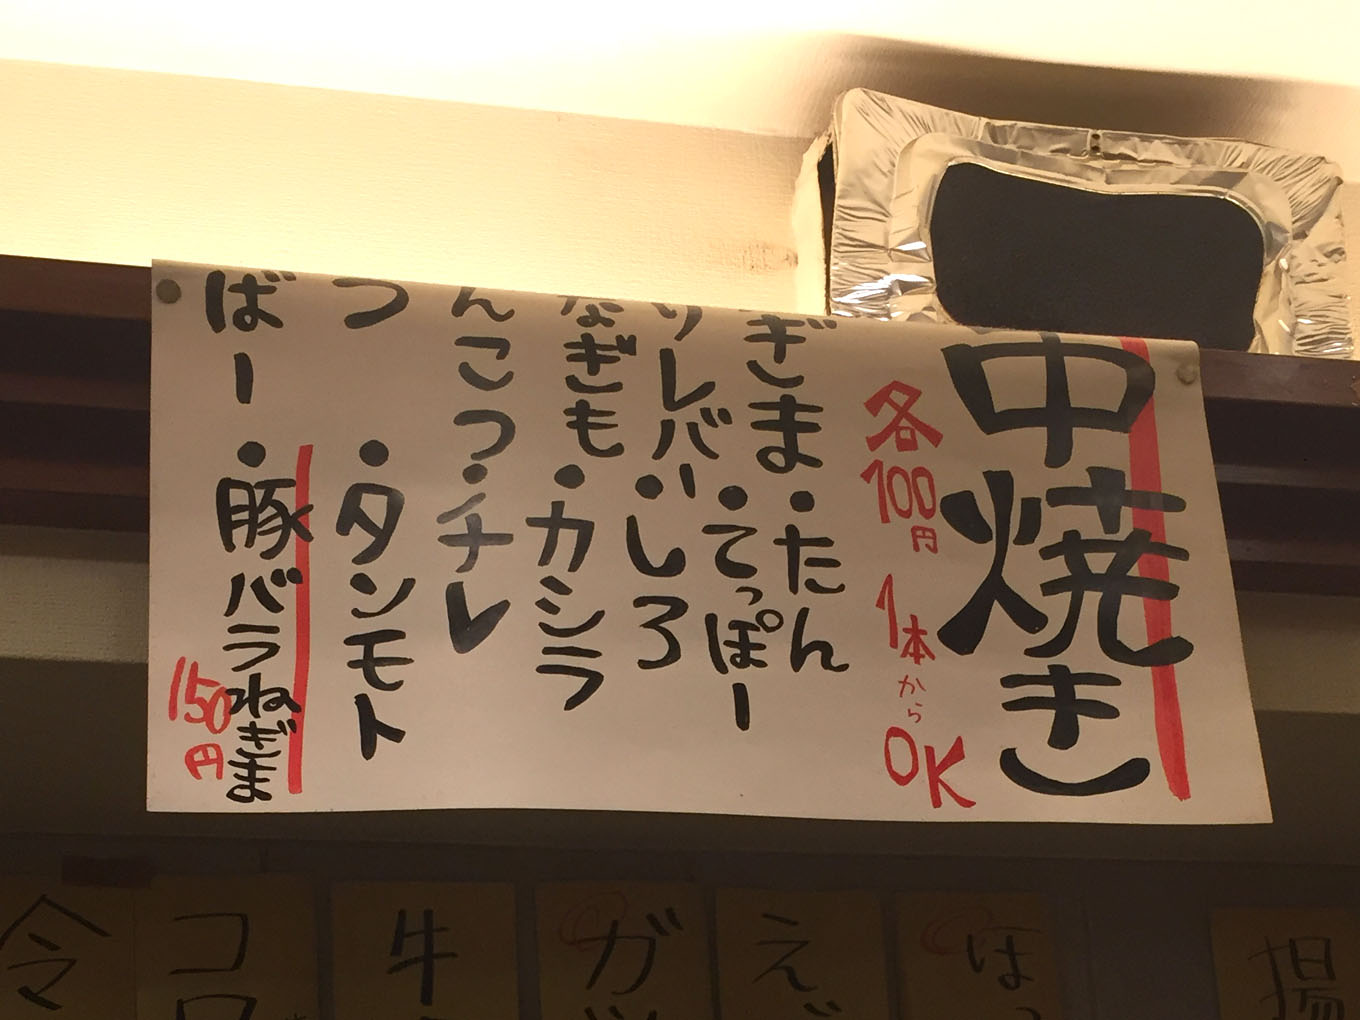 中焼き
各100円 1本からOK
ぎま・たん
りレバ・てっぽー
なぎも・しろ
んこつ・カシラ
つ・チレ
ばー・タンモト
・豚バラねぎま
150円
令
コ
牛
ガ
え
ほ
揚